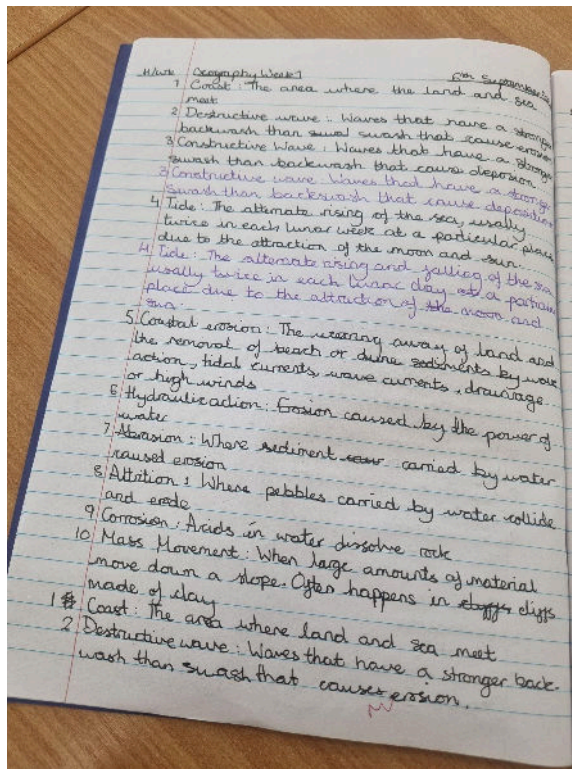 H/wk Geography Week 1 6th September
1 Coast : The area where the land and sea
meet
2 Destructive wave : Waves that have a stronger
backwash than swash that cause erosion
3 Constructive Wave : Waves that have a stronger
swash than backwash that cause deposion
3 Constructive wave: Waves that have a stronger
swash than backwash that cause deposition
4 Tide : The alternate rising of the sea, usally
twice in each lunar week at a particular place
due to the attraction of the moon and sun.
4 Tide : The alternate rising and falling of the sea
usally twice in each lunar day at a particular
place due to the attraction of the moon and
sun.
5 Coastal erosion : The wearing away of land and
the removal of beach or dune sediments by wave
action, tidal currents, wave currents, drainage
or high winds
6 Hydraulic action : Erosion caused by the power of
water
7 Abrasion : Where sediment carried by water
caused erosion
8 Attrition : Where pebbles carried by water collide
and erode
9 Corrosion : Acids in water dissolve rock
10 Mass Movement : When large amounts of material
move down a slope. Often happens in cliffs
made of clay
1 Coast : The area where land and sea meet
2 Destructive wave : Waves that have a stronger back-
wash than swash that causes erosion.